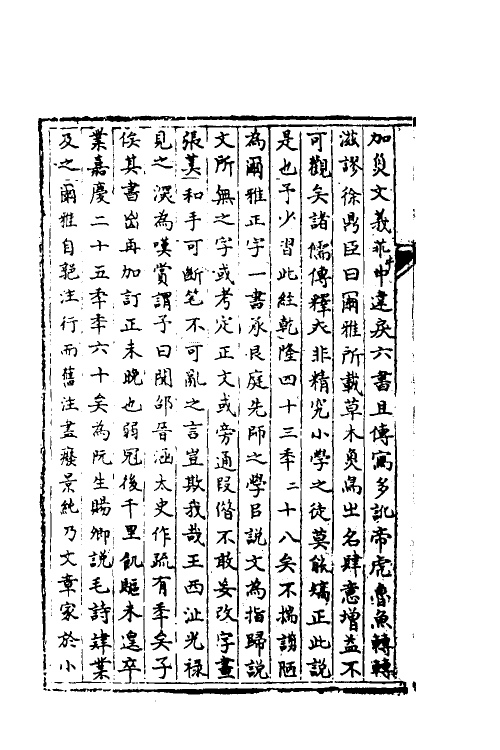 加炱文義乖中違戾六書且傳寫多訛帝虎魯魚轉轉
滋謬徐鼎臣曰爾雅所載草木魚鳥出名肆意增益不
可觀矣諸儒傳釋夶非精究小學之徒莫能矯正此說
是也予少習此經乾隆四十三秊二十八矣不揣謭陋
為爾雅正字一書承艮庭先師之學㠯說文為指歸說
文所無之字或考定正文或旁通叚偕不敢妄改字畫
張其和手可斷笔不可亂之言豈欺我哉王西沚光祿
見之深為嘆賞謂予曰聞邵晉涵太史作疏有秊矣子
俟其書出再加訂正未晚也弱冠後千里飢驅未遑卒
業嘉慶二十五秊秊六十矣為阮生賜卿說毛詩肄業
及之爾雅自郭注行而舊注盡癈景純乃文章家於小